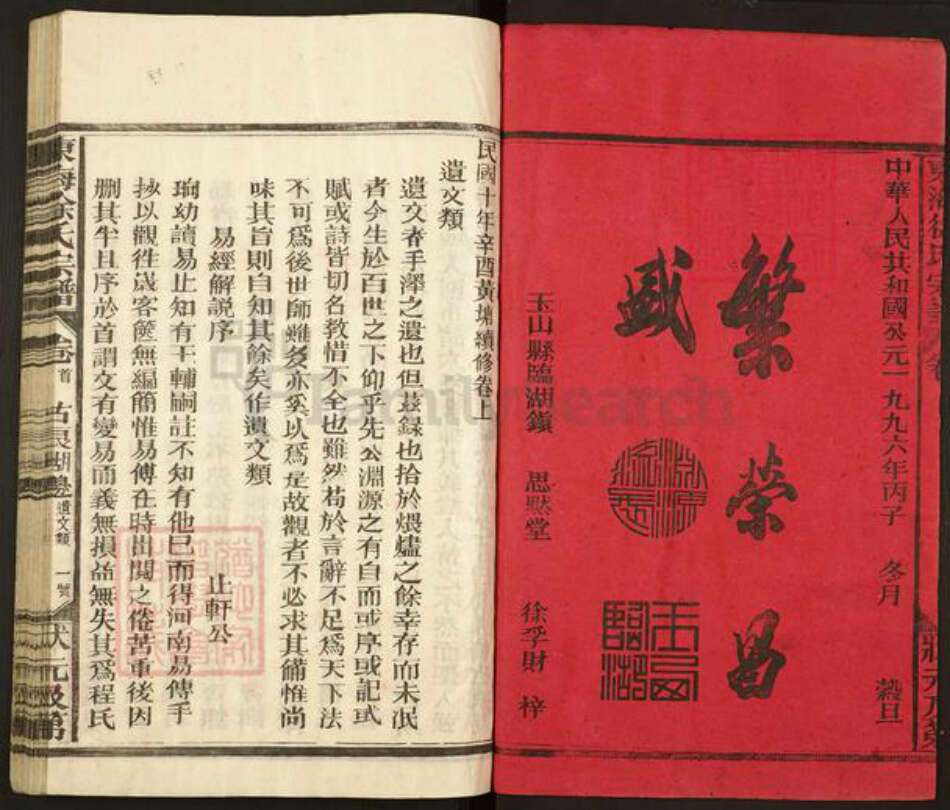 中華人民共和國公元一九九六年丙子 冬月 穀旦
繁榮昌
盛
玉山縣臨湖鎮 思默堂 徐孚財 梓
民國十年辛酉黃塘續修卷上
遺文類
遺文者手澤之遺也但茲錄也拾於煨燼之餘幸存而未泯
者今生於百世之下仰乎先公淵源之有自而或序或記或
賦或詩皆切名教惜不全也雖然苟於言辭不足爲天下法
不可爲後世師雖多亦奚以爲是故觀者不必求其備惟尚
味其旨則自知其餘矣作遺文類
易經解説序 止軒公
珦幼讀易止知有王輔嗣註不知有他巳而得河南易傳手
抄以觀徃歲客篋無編簡惟易傳在時出閱之倦苦重後因
刪其半且序於首謂文有變易而義無損益無失其爲程氏
東海徐氏宗譜 卷首 古良湖邊 遺文類 一號 狀元及第
FamilySearch